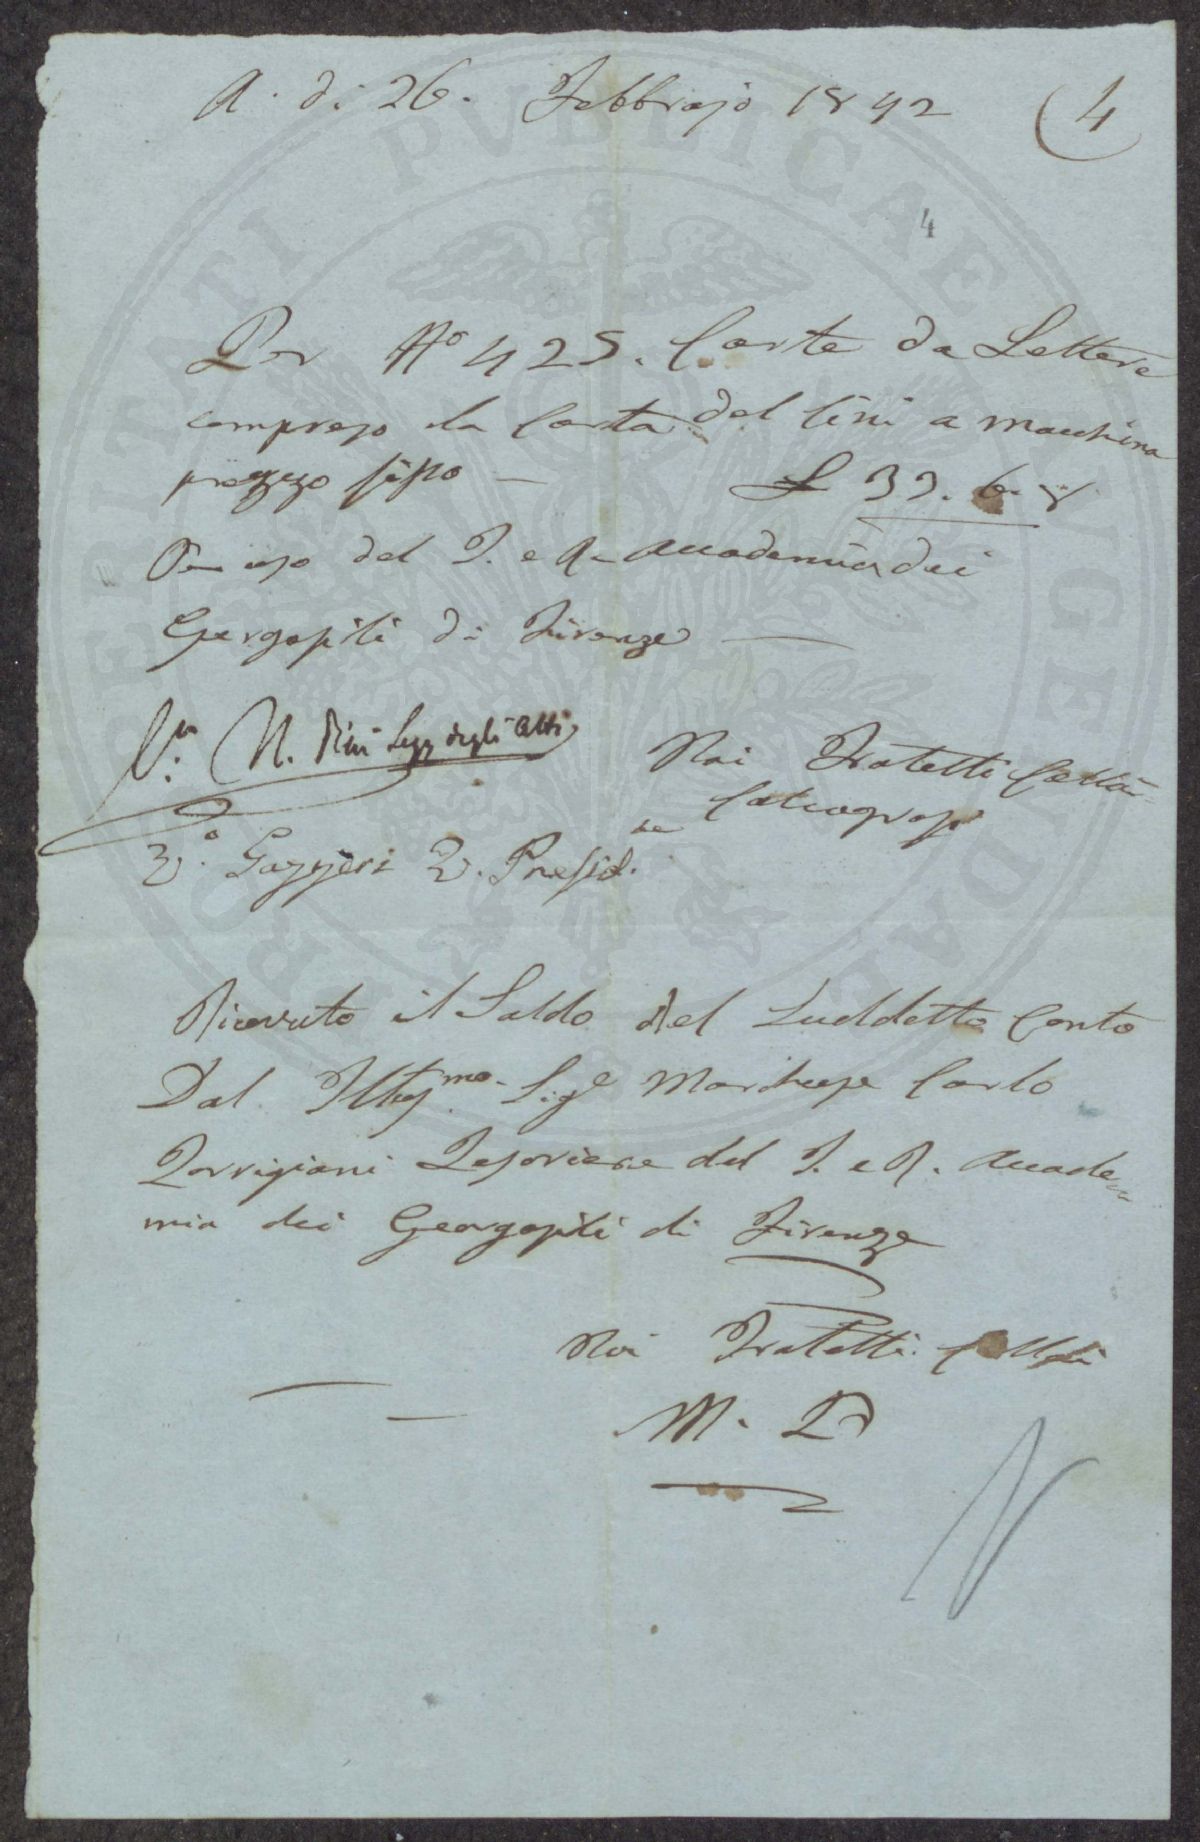 A. di 26. Febbrajo 1842
4
4
PROSPERITATI PVBLICAE AVGENDAE
Per N.º 425. Carte da Lettere
compreso la Carta del Cini a macchina
prezzo fisso — £ 39. 6. 8
Per uso del I. e R. Accademia dei
Georgofili di Firenze —
V.º N. Rini Seg. degli Atti
Noi Fratelli
Calcografi
V.º Gazzeri V. Presid.te
Ricevuto il Saldo del Suddetto Conto
Dal Illus.mo Sig.e Marchese Carlo
Torrigiani Tesoriere del I. e R. Accade=
mia dei Georgofili di Firenze
Noi Fratelli
M. P.